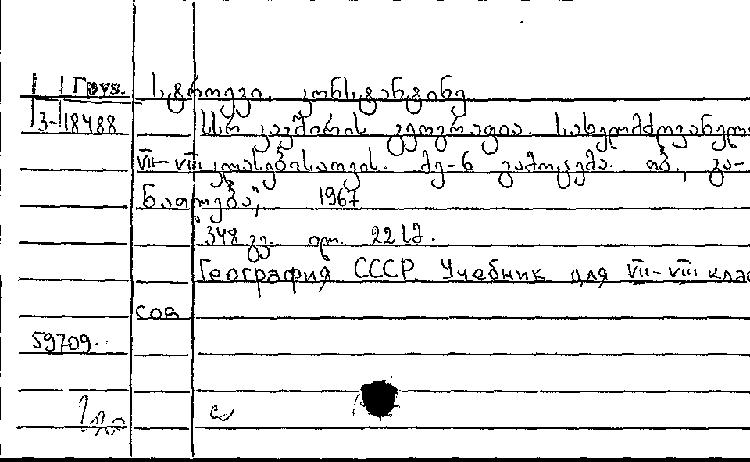 Груз. სტროევი კონსტანტინე
3-18488 სსრ კავშირის გეოგრაფია. სახელმძღვანელო
VII-VIII კლასებისათვის. მე-6 გამოცემა. თბ., გა-
ნათლება, 1967
348 გვ. ფი. 22
География СССР. Учебник для VII-VIII клас
сов
59709.